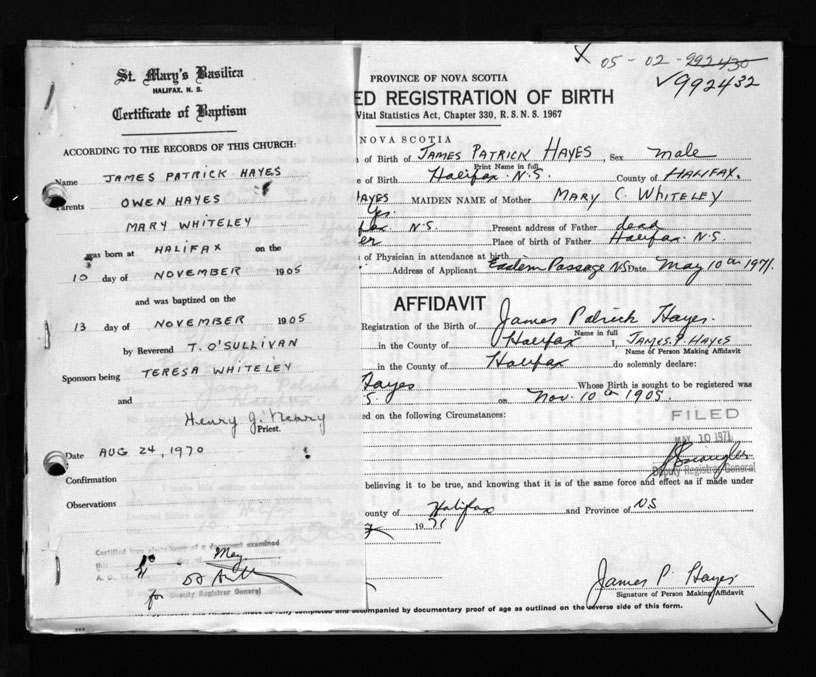 St. Mary's Basilica
HALIFAX, N. S.
Certificate of Baptism
ACCORDING TO THE RECORDS OF THIS CHURCH:
Name JAMES PATRICK HAYES
Parents OWEN HAYES
MARY WHITELEY
was born at HALIFAX on the
10 day of NOVEMBER 1905
and was baptized on the
13 day of NOVEMBER 1905
by Reverend T. O'SULLIVAN
Sponsors being TERESA WHITELEY
and
Henry J. Neary
Priest.
Date AUG 24, 1970
Confirmation
Observations
Certified true photo of a document examined
this May
A. D.
for Deputy Registrar General
X 05-02-992430
✓992432
PROVINCE OF NOVA SCOTIA
ED REGISTRATION OF BIRTH
Vital Statistics Act, Chapter 330, R. S. N. S. 1967
NOVA SCOTIA
of Birth of JAMES PATRICK HAYES, Sex male
Print Name in full
of Birth Halifax N.S. County of HALIFAX.
HAYES MAIDEN NAME of Mother MARY C. WHITELEY
N.S. Present address of Father dead
Place of birth of Father Halifax N.S.
of Physician in attendance at birth
Address of Applicant Eastern Passage NS Date May 10th 1971.
AFFIDAVIT
Registration of the Birth of James Patrick Hayes.
Name in full
in the County of Halifax I, JAMES P. HAYES
Name of Person Making Affidavit
in the County of Halifax do solemnly declare:
Hayes Whose Birth is sought to be registered was
S. on Nov. 10th 1905.
ed on the following Circumstances:
FILED
MAY 10 1971
Deputy Registrar General
believing it to be true, and knowing that it is of the same force and effect as if made under
county of Halifax and Province of NS
1971
James P. Hayes
Signature of Person Making Affidavit
completed and accompanied by documentary proof of age as outlined on the reverse side of this form.